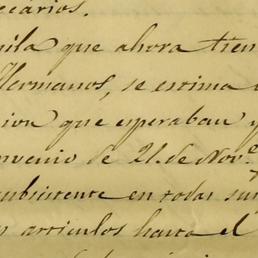 ecarios.
ila que ahora tien
Hermanos, se estima
ion que esperaban y
nvenio de 21. de Nov.e
subsistente en todas sus
s articulos hasta el